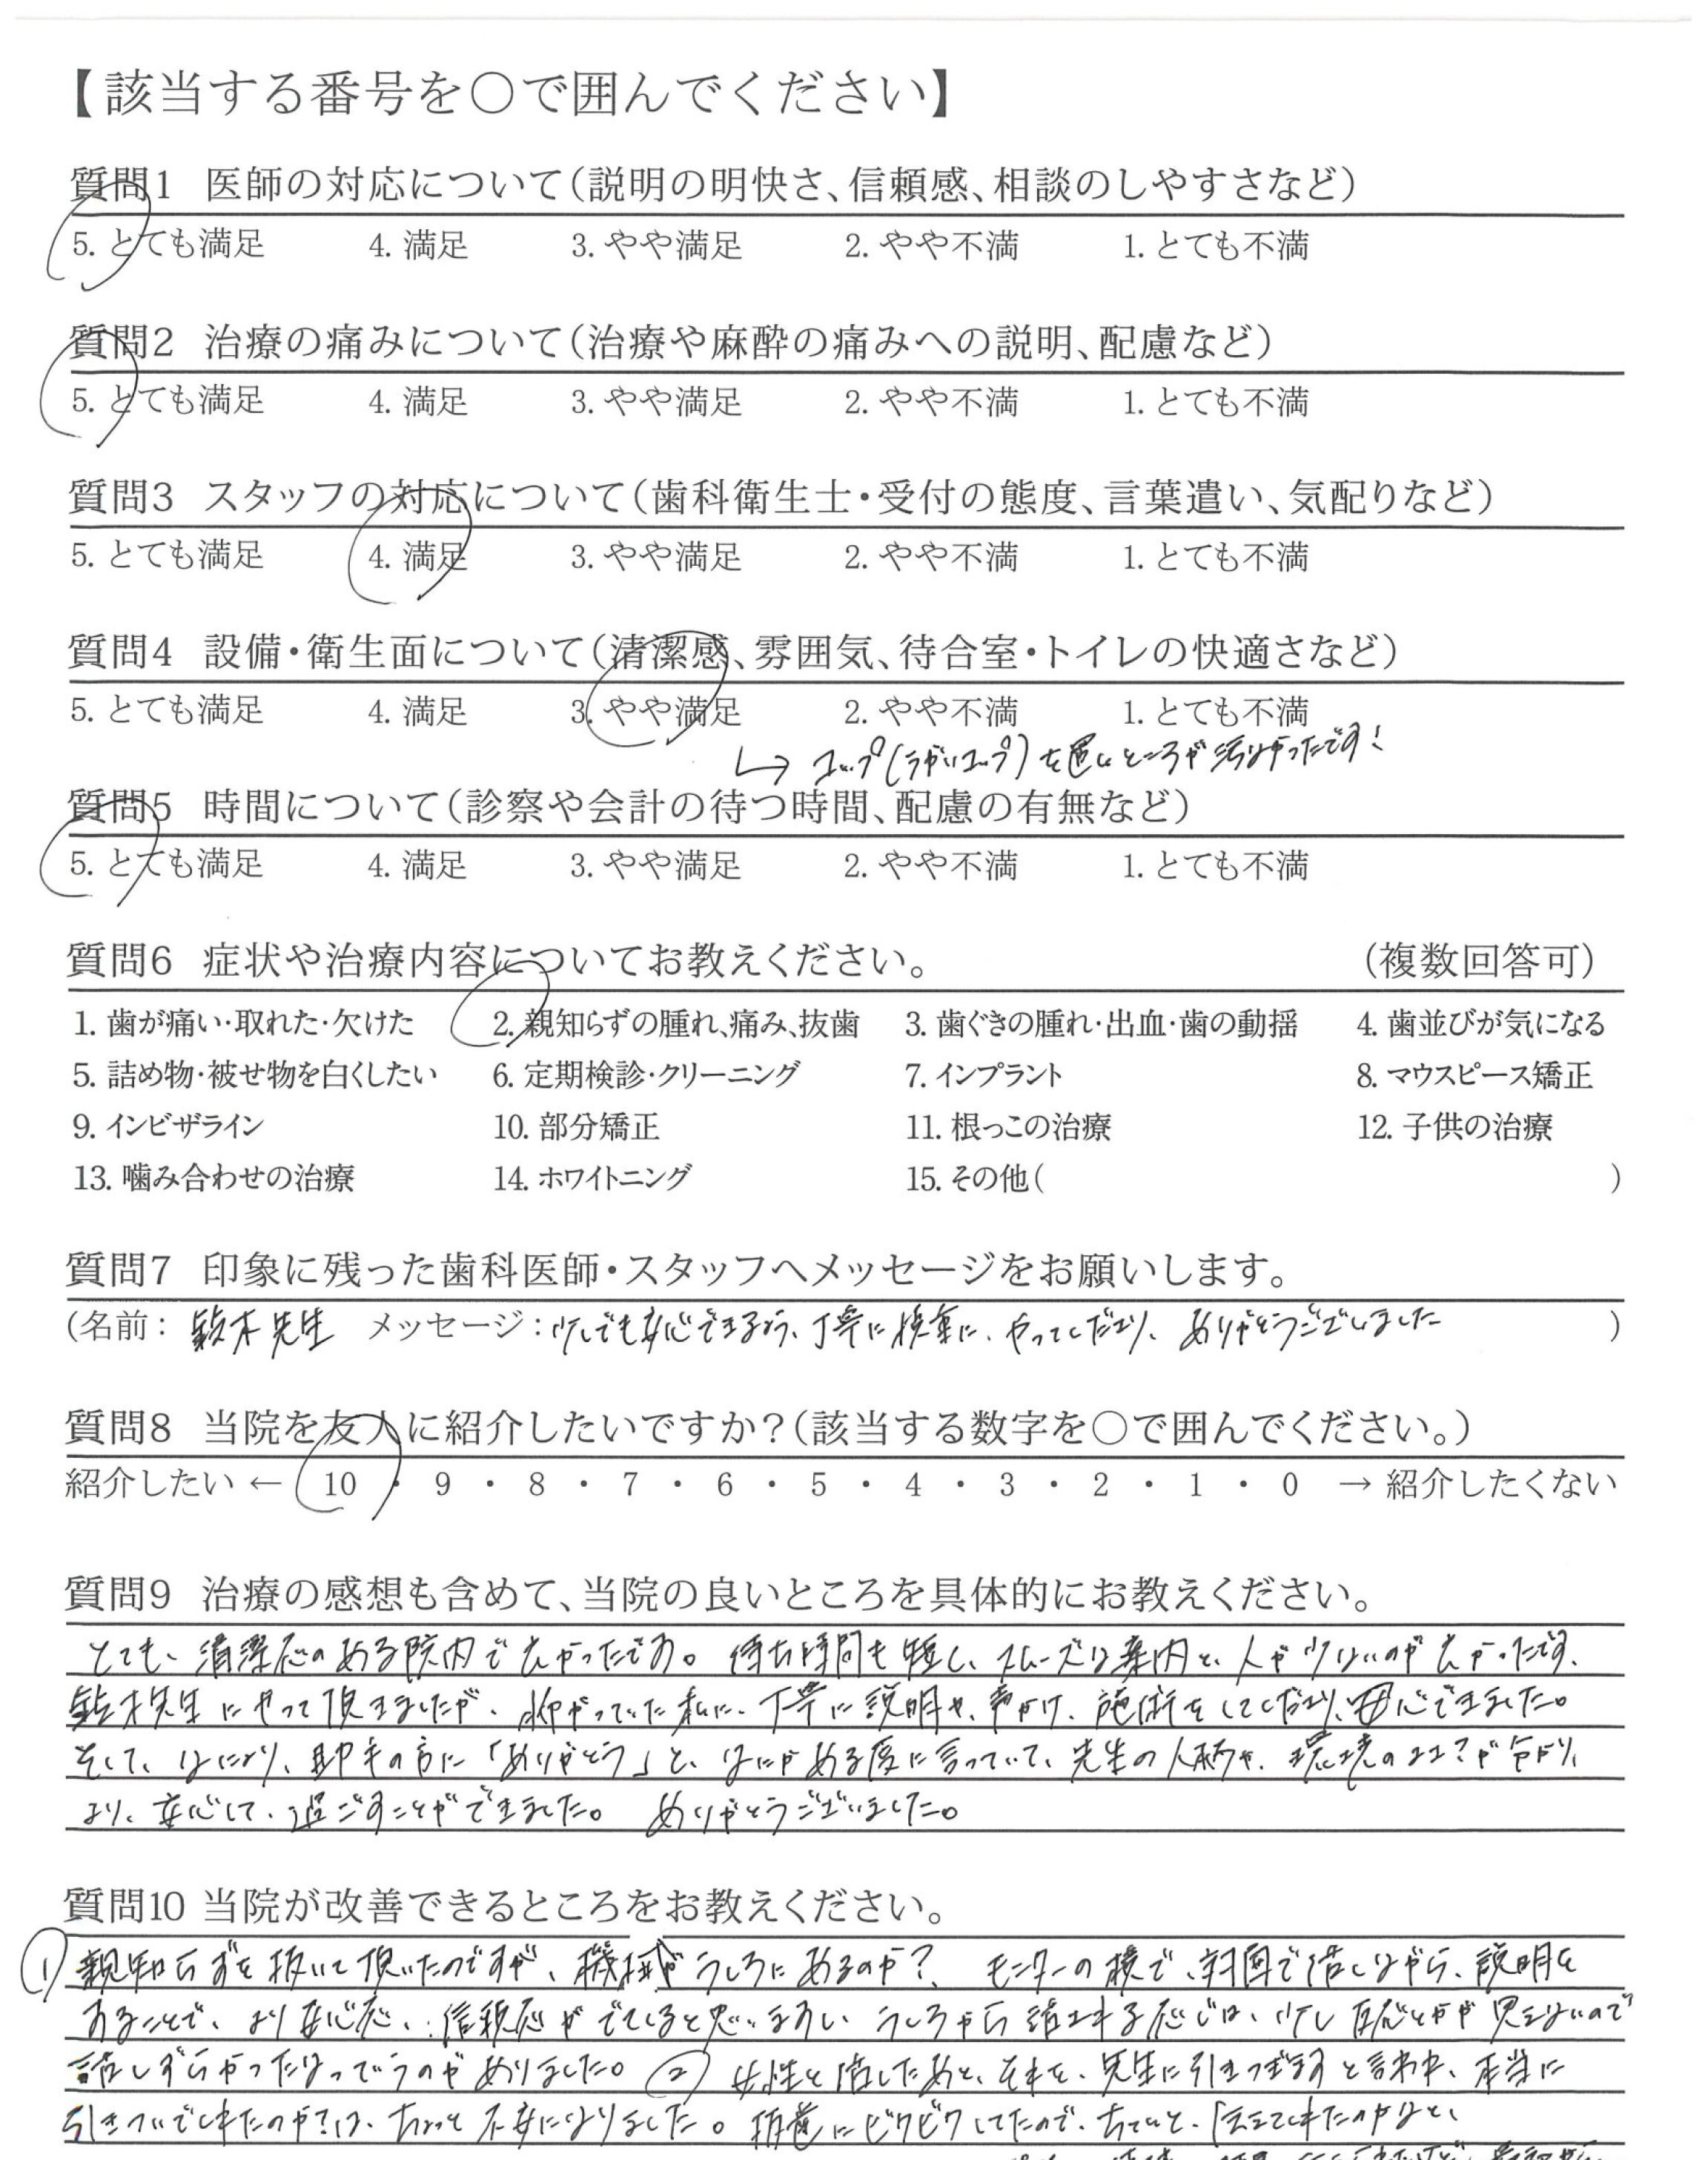 【該当する番号を〇で囲んでください】
質問1 医師の対応について（説明の明快さ、信頼感、相談のしやすさなど）
5. とても満足 4. 満足 3. やや満足 2. やや不満 1. とても不満
質問2 治療の痛みについて（治療や麻酔の痛みへの説明、配慮など）
5. とても満足 4. 満足 3. やや満足 2. やや不満 1. とても不満
質問3 スタッフの対応について（歯科衛生士・受付の態度、言葉遣い、気配りなど）
5. とても満足 4. 満足 3. やや満足 2. やや不満 1. とても不満
質問4 設備・衛生面について（清潔感、雰囲気、待合室・トイレの快適さなど）
5. とても満足 4. 満足 3. やや満足 2. やや不満 1. とても不満
↳ コップ(うがいコップ)を置くところが汚なかったです!
質問5 時間について（診察や会計の待つ時間、配慮の有無など）
5. とても満足 4. 満足 3. やや満足 2. やや不満 1. とても不満
質問6 症状や治療内容についてお教えください。 （複数回答可）
1. 歯が痛い・取れた・欠けた 2. 親知らずの腫れ、痛み、抜歯 3. 歯ぐきの腫れ・出血・歯の動揺 4. 歯並びが気になる
5. 詰め物・被せ物を白くしたい 6. 定期検診・クリーニング 7. インプラント 8. マウスピース矯正
9. インビザライン 10. 部分矯正 11. 根っこの治療 12. 子供の治療
13. 噛み合わせの治療 14. ホワイトニング 15. その他（ ）
質問7 印象に残った歯科医師・スタッフへメッセージをお願いします。
（名前： 鈴木先生 メッセージ：少しでも安心できるよう、丁寧に 、やってくださり、ありがとうございました ）
質問8 当院を友人に紹介したいですか？（該当する数字を〇で囲んでください。）
紹介したい ← 10 ・ 9 ・ 8 ・ 7 ・ 6 ・ 5 ・ 4 ・ 3 ・ 2 ・ 1 ・ 0 → 紹介したくない
質問9 治療の感想も含めて、当院の良いところを具体的にお教えください。
とても、清潔感のある院内でよかったです。 待ち時間も短く、スムーズな案内と、人が少ないのがよかったです。
鈴木先生にやって頂きましたが、怖がっていた私に、丁寧に説明や、声かけ、施術をしてくださり、安心できました。
そして、なにより、助手の方に「ありがとう」と、なにかある度に言っていて、先生の人柄や、環境のよさ?が分かり、
より、安心して、過ごすことができました。 ありがとうございました。
質問10 当院が改善できるところをお教えください。
① 親知らずを抜いて頂いたのですが、機械がうしろにあるのか?、 モニターの横で、対面で話しながら、説明を
することで、より安心感、信頼感がでてくると思いますし、うしろから話される感じは、少し 反応とかが見えないので
話しずらかったなっていうのがありました。 ② 女性と話したあと、それを、先生に引きつぎますと言われ、本当に
引きついでくれたのか?は、ちょっと不安になりました。 抜歯にビクビクしてたので、ちゃんと、伝えてくれたのかなと、